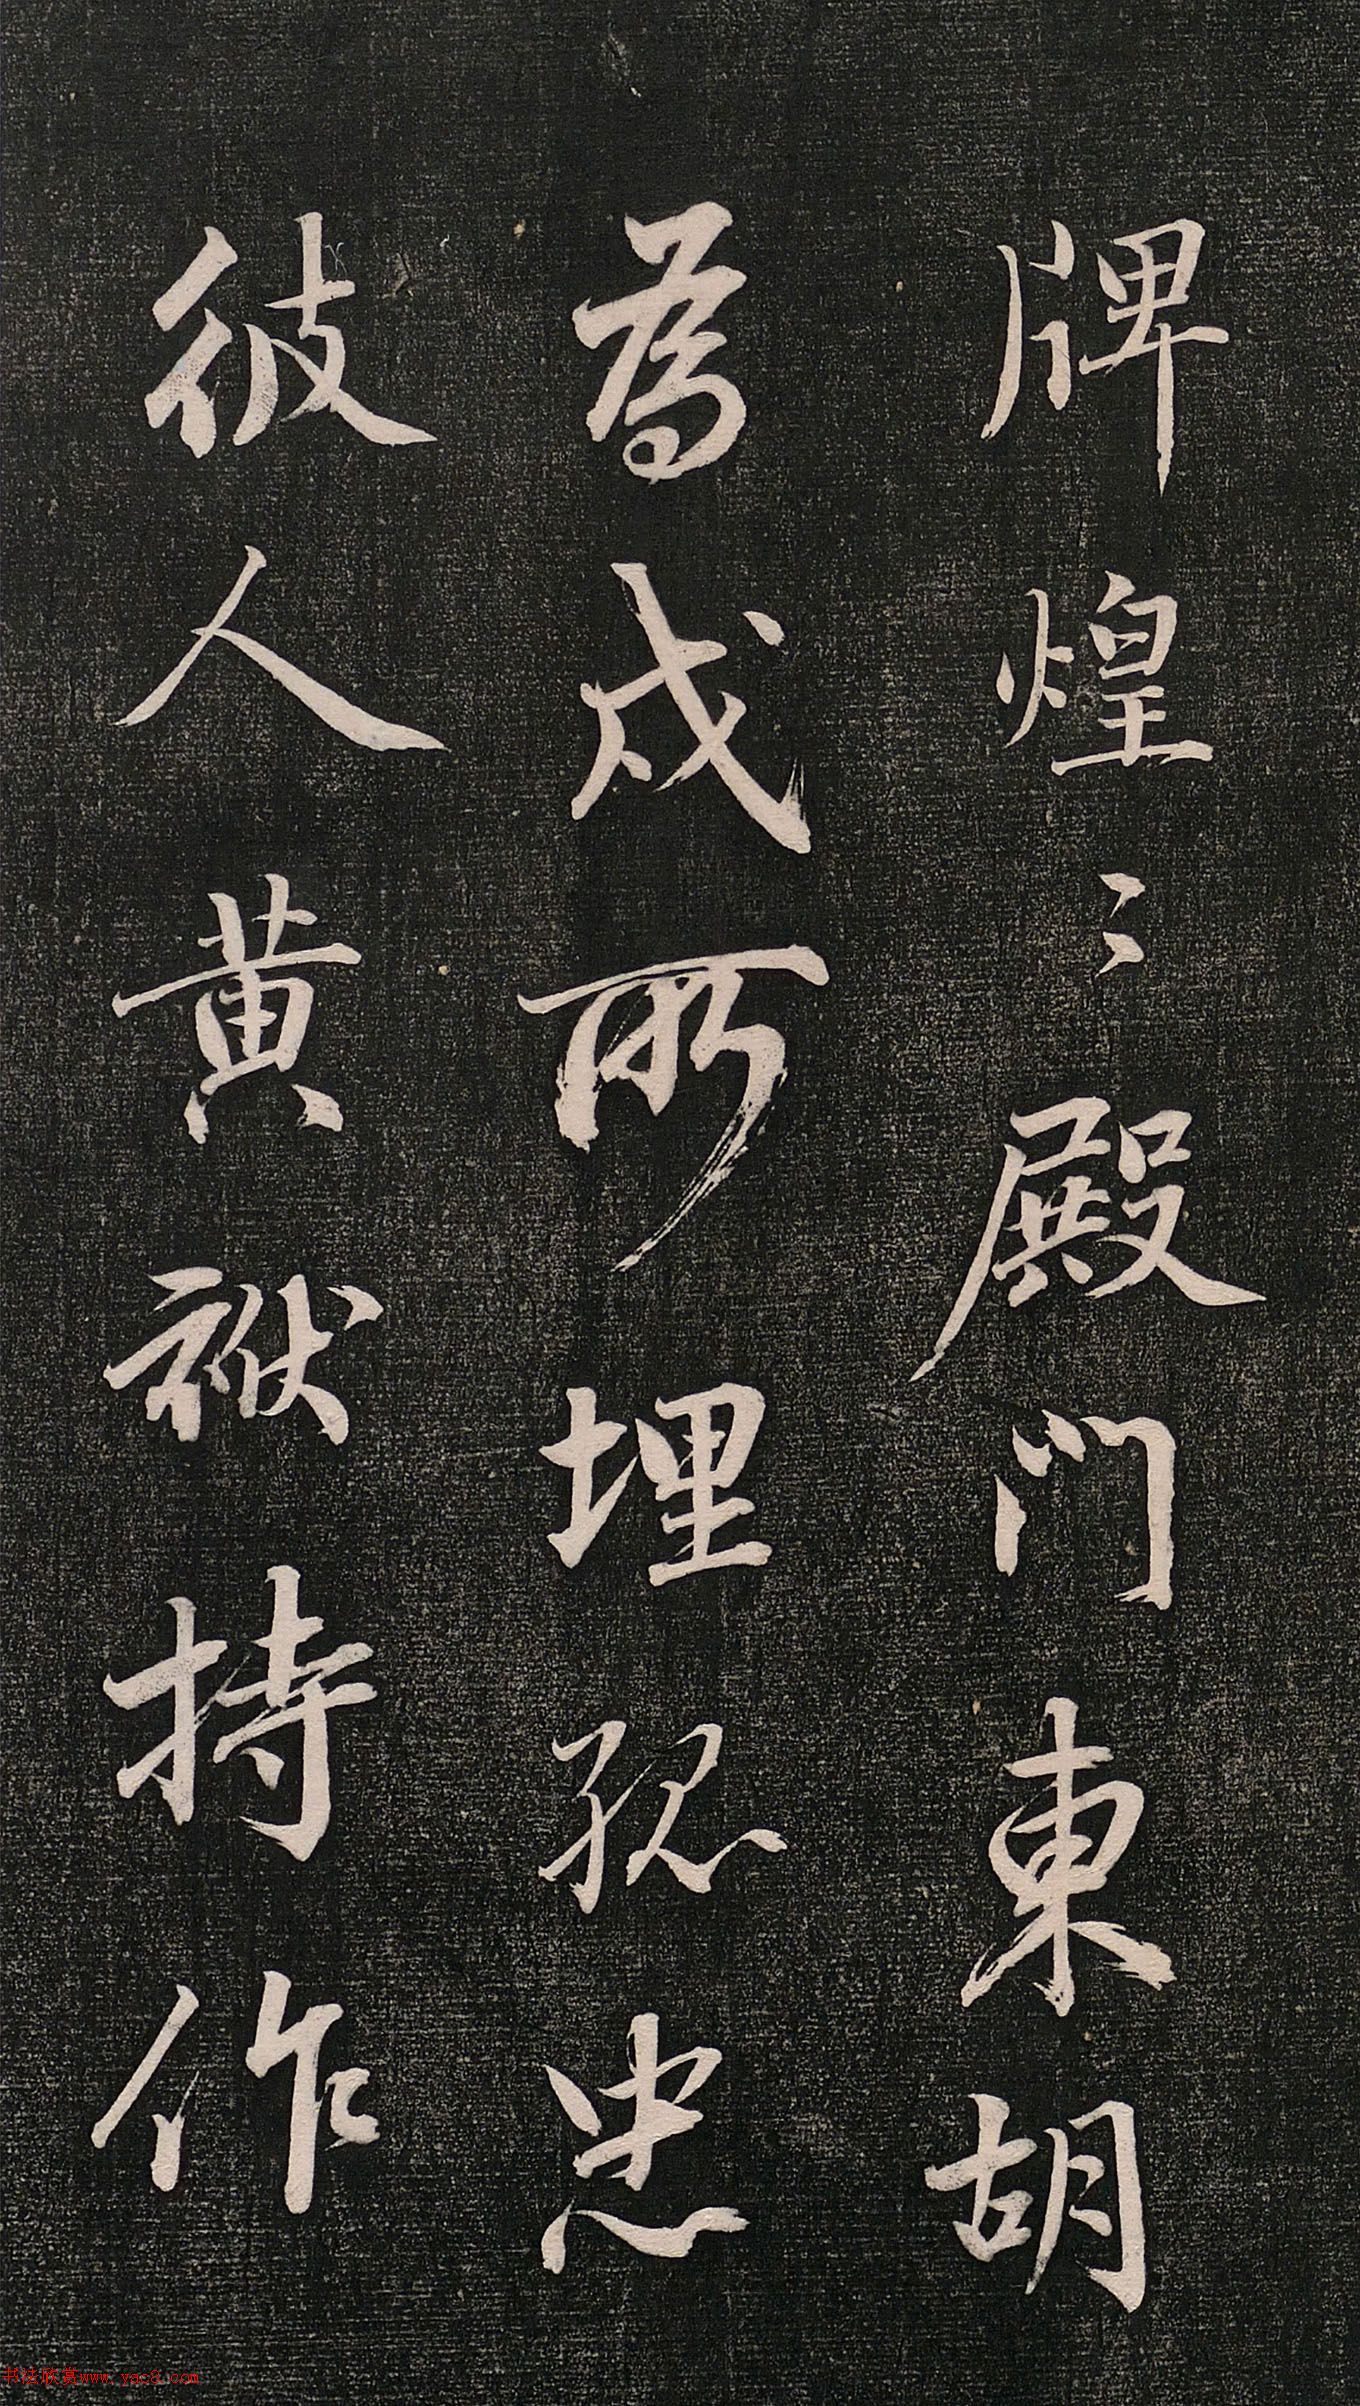 牌煌〻殿門東胡
為戍所埋孤忠
彼人黄袱持作
书法欣赏www.yac8.com